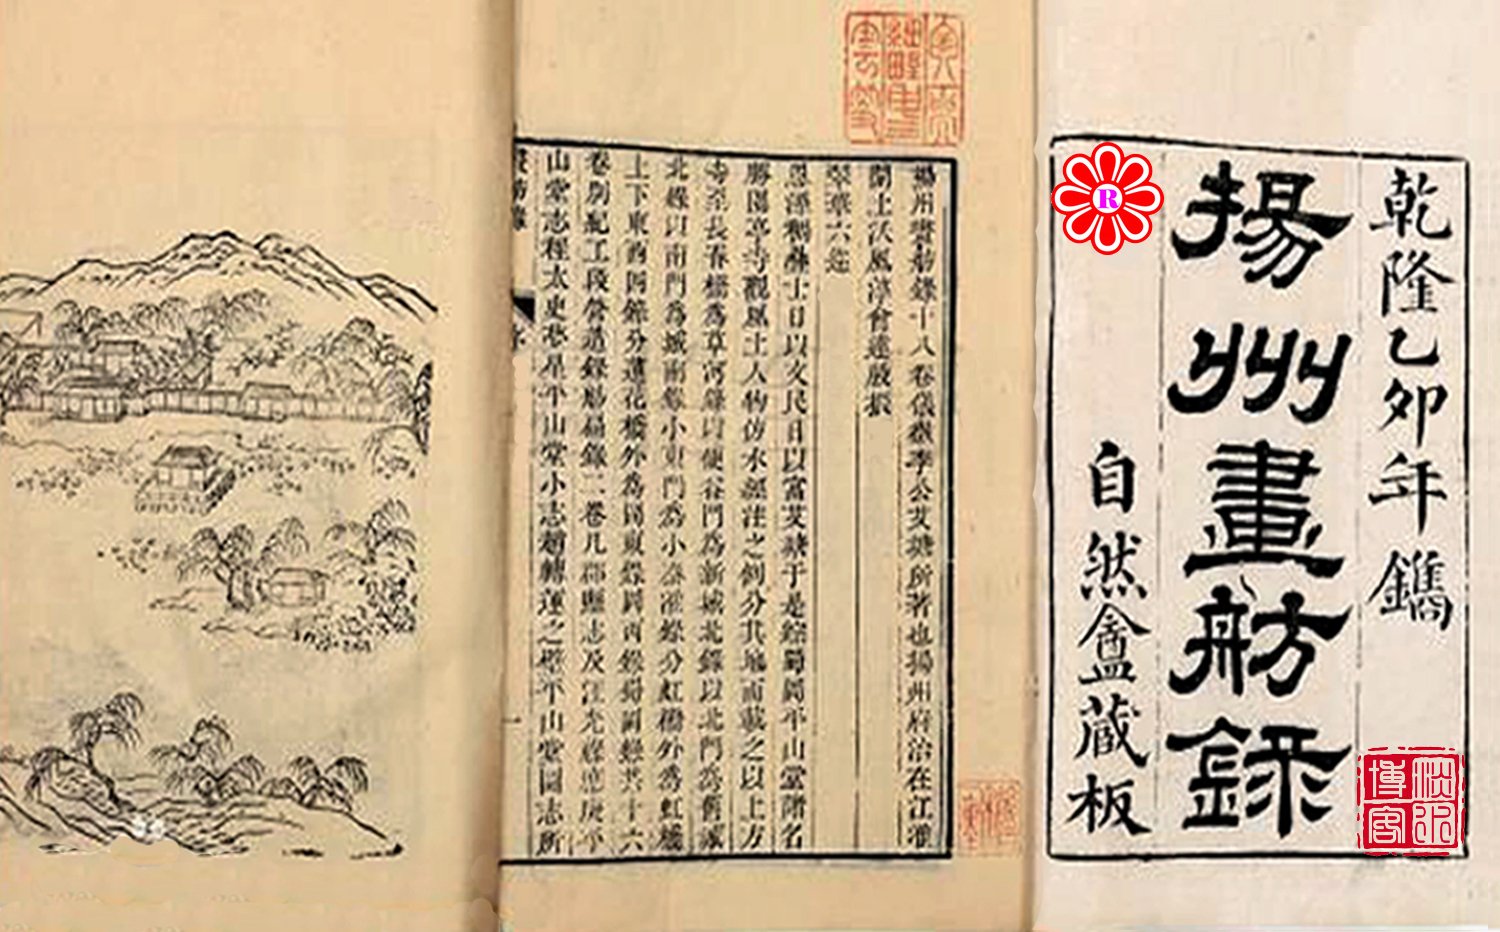 乾隆乙卯年鐫
揚州畫舫錄
自然盦藏板
R
博客
揚州畫舫錄十八卷儀徵李公艾塘所著也揚州府治在江淮
間土沃風淳會達殷振
翠華六巡
恩澤稠疊士日以文民日以富艾塘于是綜蜀岡平山堂諸名
勝園亭寺觀風土人物仿水經注之例分其地而載之以上方
寺至長春橋為草河錄以便益門為新城北錄以北門為舊城
北錄以南門為城南錄小東門為小秦淮錄分虹橋外為虹橋
上下東西四錄分蓮花橋外為岡東錄岡西錄蜀岡錄共十六
卷別紀工段營造錄舫扁錄二卷凡郡縣志及汪光祿應庚平
山堂志程太史夢星平山堂小志趙轉運之壁平山堂圖志所
畫舫錄
序
一